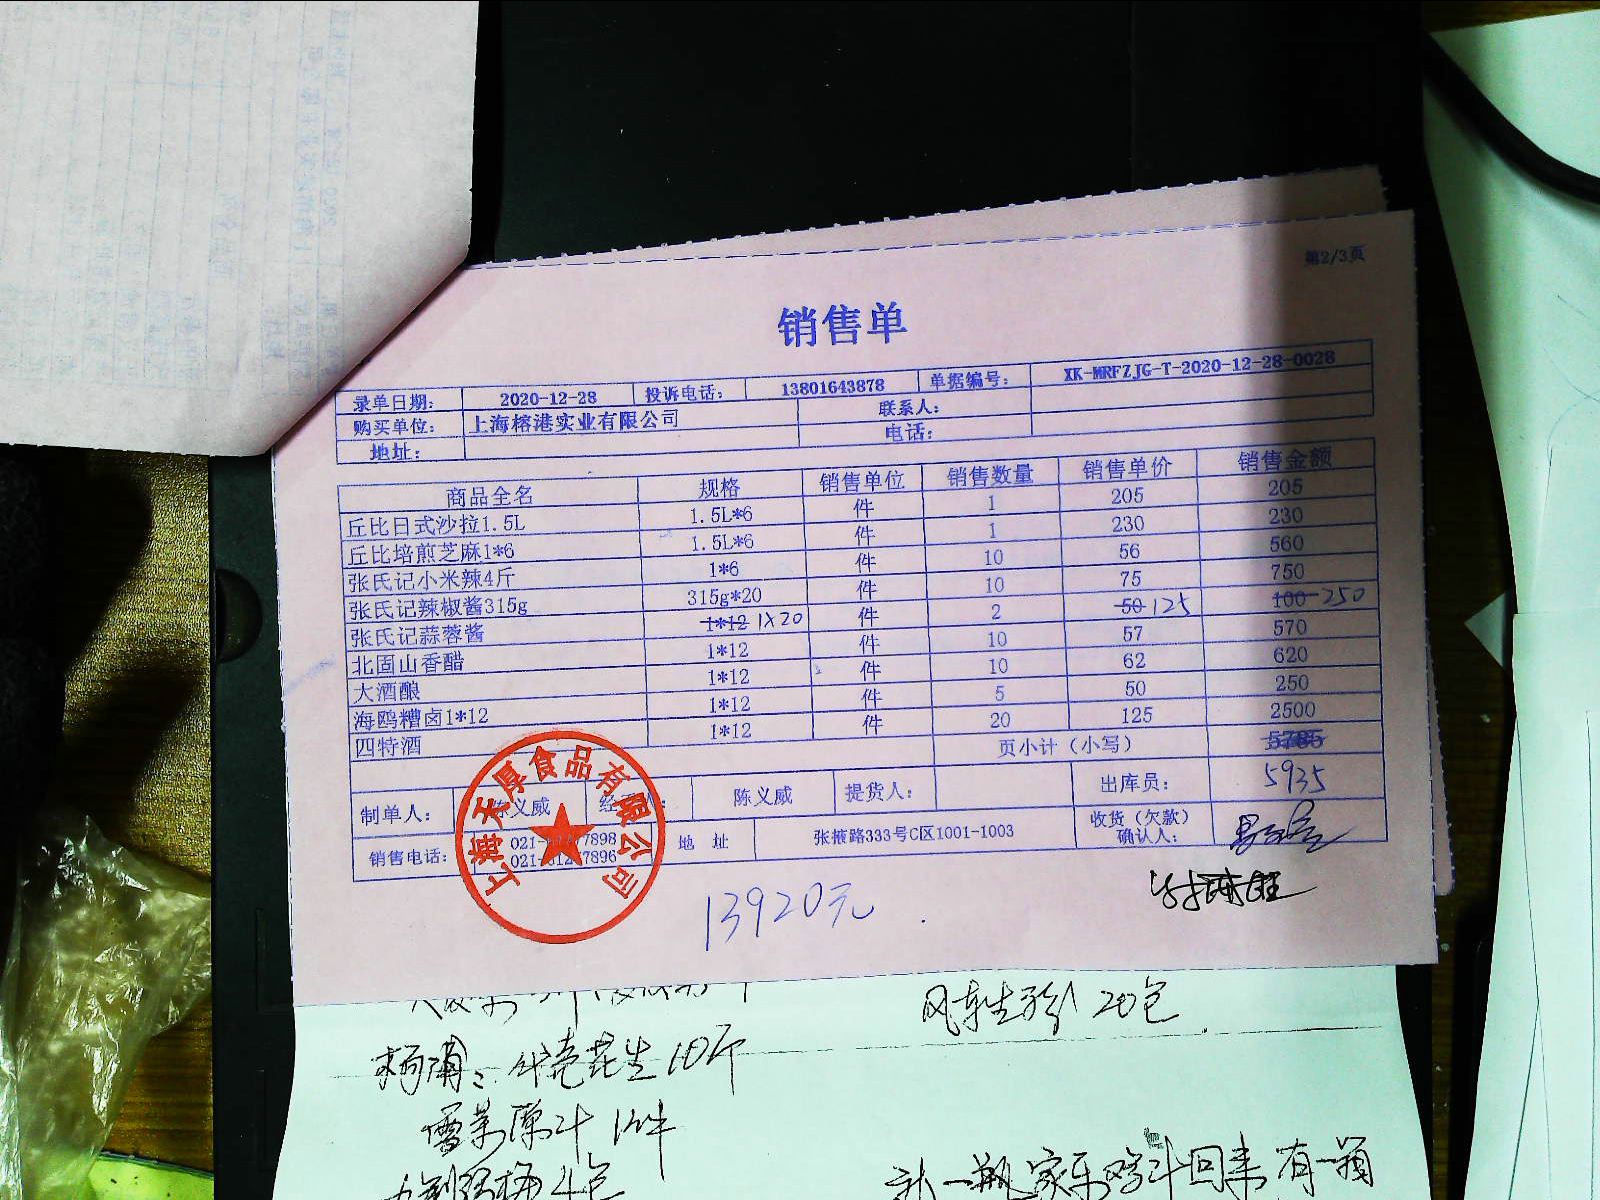 第2/3页
销售单
录单日期: 2020-12-28 投诉电话: 13801643878 单据编号: XK-MRFZJG-T-2020-12-28-0028
购买单位: 上海榕港实业有限公司 联系人:
地址: 电话:
商品全名 规格 销售单位 销售数量 销售单价 销售金额
丘比日式沙拉1.5L 1.5L*6 件 1 205 205
丘比培煎芝麻1*6 1.5L*6 件 1 230 230
张氏记小米辣4斤 1*6 件 10 56 560
张氏记辣椒酱315g 315g*20 件 10 75 750
张氏记蒜蓉酱 1*12 1X20 件 2 50 125 100 250
北固山香醋 1*12 件 10 57 570
大酒酿 1*12 件 10 62 620
海鸥糟卤1*12 1*12 件 5 50 250
四特酒 1*12 件 20 125 2500
页小计（小写） 5785
5935
制单人: 陈义威 陈义威 提货人: 出库员:
销售电话: 021- 7898 地 址 张掖路333号C区1001-1003 收货（欠款）确认人:
021- 7896
上海天厚食品有限公司
13920元
风车生粉 20包
花生10斤
1件
4包